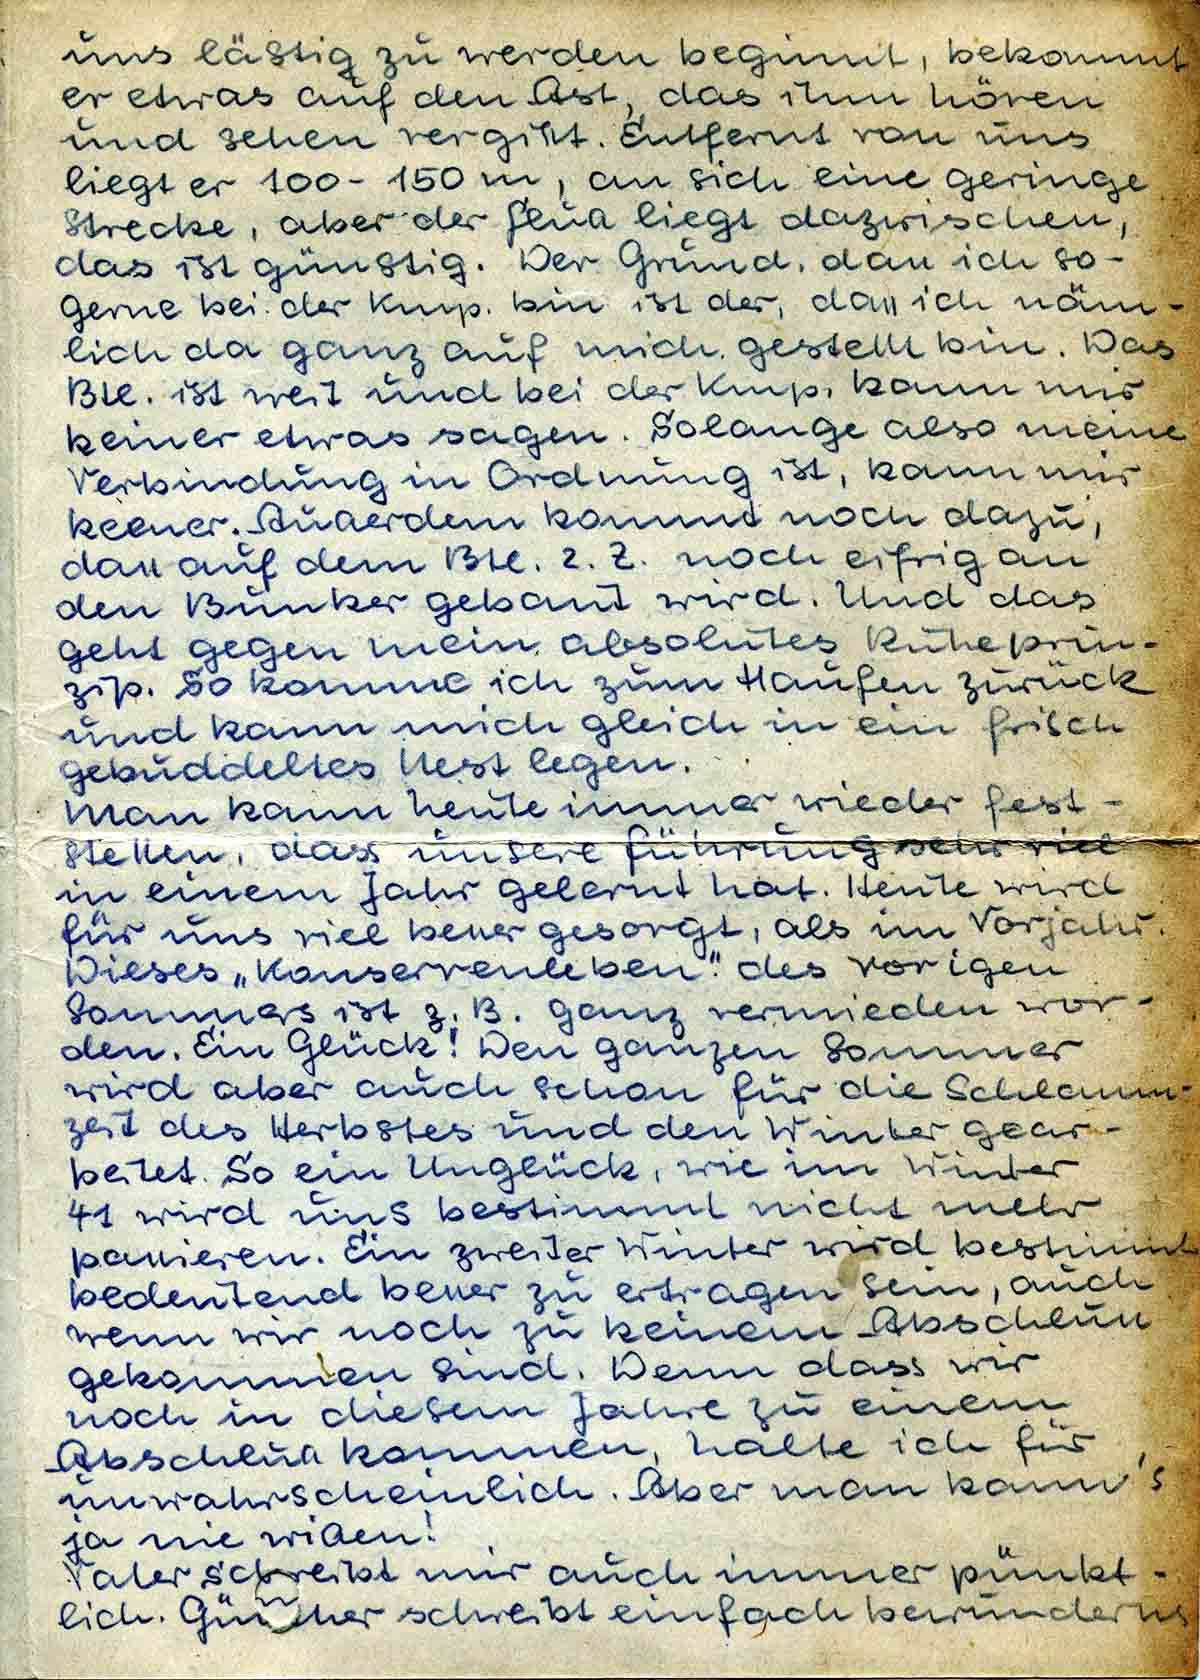 uns lästig zu werden beginnt, bekommt
er etwas auf den Ast, das ihm hören
und sehen vergißt. Entfernt von uns
liegt er 100 - 150 m, an sich eine geringe
Strecke, aber der Fluß liegt dazwischen,
das ist günstig. Der Grund, daß ich so-
gerne bei der Kmp. bin ist der, daß ich näm-
lich da ganz auf mich gestellt bin. Das
Btl. ist weit und bei der Kmp. kann mir
keiner etwas sagen. Solange also meine
Verbindung in Ordnung ist, kann mir
keener. Außerdem kommt noch dazu,
daß auf dem Btl. z. Z. noch eifrig an
den Bunker gebaut wird. Und das
geht gegen mein absolutes Ruheprin-
zip. So komme ich zum Haufen zurück
und kann mich gleich in ein frisch
gebuddeltes Nest legen.
Man kann heute immer wieder fest-
stellen, dass unsere Führung sehr viel
in einem Jahr gelernt hat. Heute wird
für uns viel beßer gesorgt, als im Vorjahr.
Dieses „Konservenleben" des vorigen
Sommers ist z. B. ganz vermieden wor-
den. Ein Glück! Den ganzen Sommer
wird aber auch schon für die Schlamm-
zeit des Herbstes und den Winter gear-
beitet. So ein Unglück, wie im Winter
41 wird uns bestimmt nicht mehr
paßieren. Ein zweiter Winter wird bestimmt
bedeutend beßer zu ertragen sein, auch
wenn wir noch zu keinem Abschluß
gekommen sind. Denn dass wir
noch in diesem Jahre zu einem
Abschluß kommen, halte ich für
unwahrscheinlich. Aber man kann's
ja nie wißen!
Vater schreibt mir auch immer pünkt-
lich. Günther schreibt einfach bewunderns